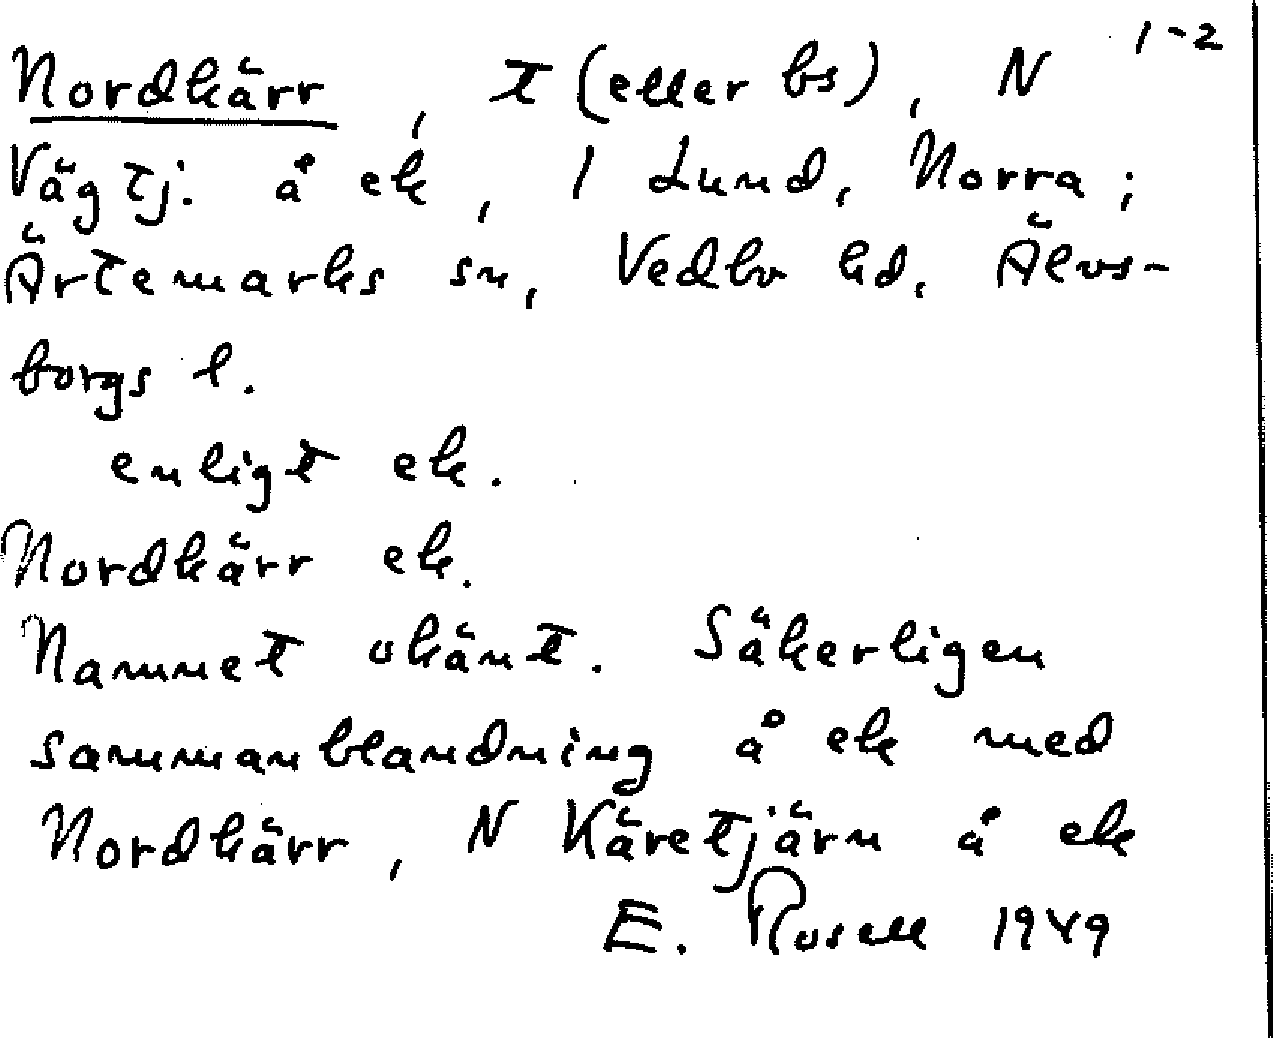 1-2
Nordkärr, t (eller bs), N
Vägtj. å ek, 1 Lund, Norra;
Ärtemarks sn, Vedbo hd, Älvs-
borgs l.
enligt ek.
Nordkärr ek.
Namnet okänt. Säkerligen
sammanblandning å ek med
Nordkärr, N Käretjärn å ek
E. Rosell 1949